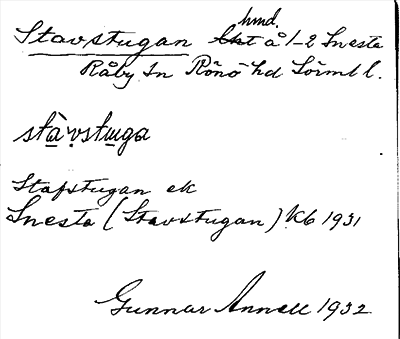 Stavstugan hmd. å 1-2 Snesta
Råby sn Rönö hd Sörml l.
stàvstuga
Stafstugan ek
Snesta (Stavstugan) Kb 1931
Gunnar Annell 1932